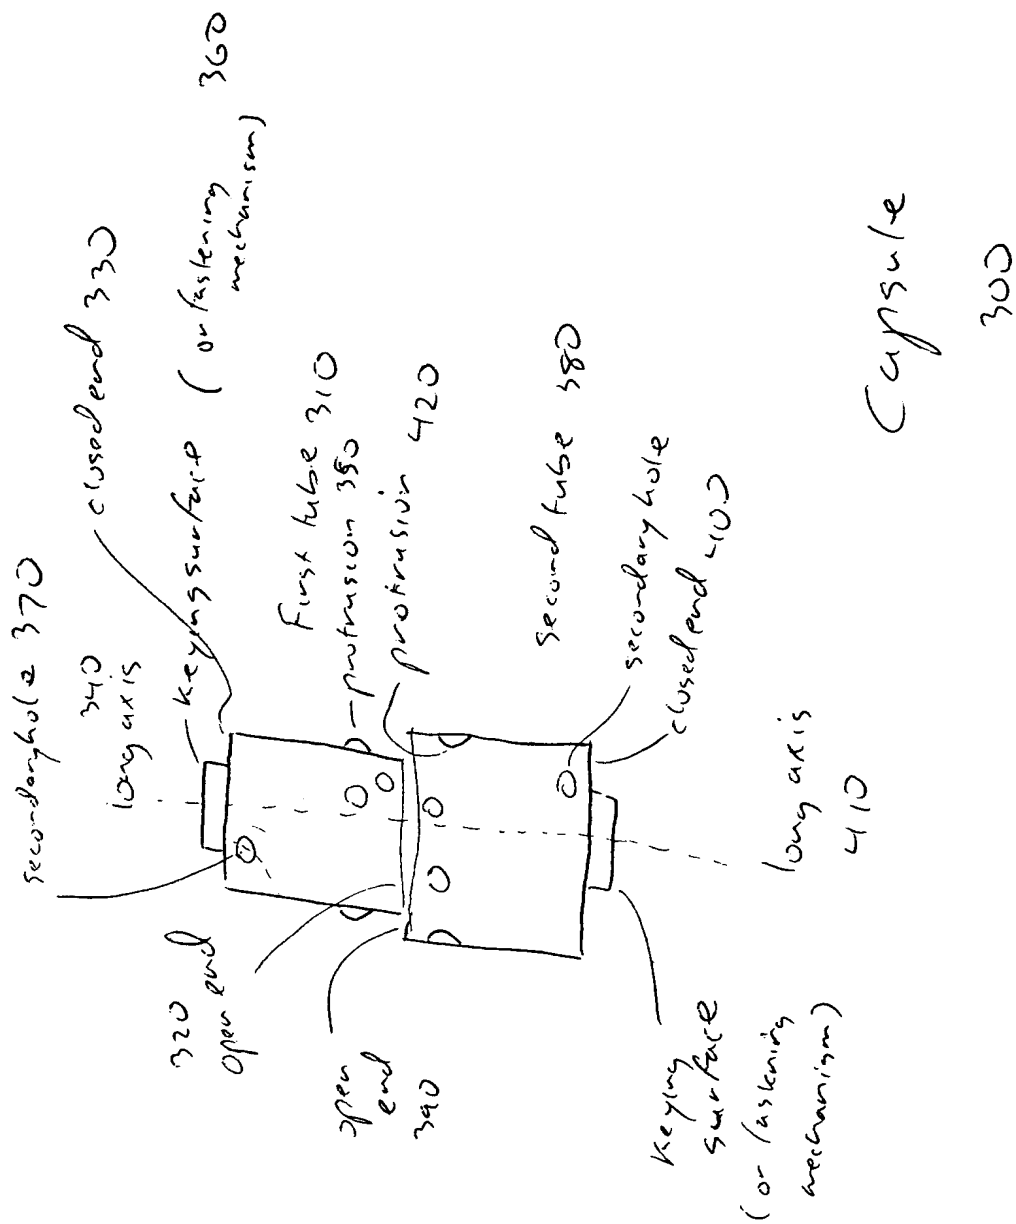 secondaryhole 370
340
long axis
closed end 330
keying surface (or fastening
mechanism)
360
First tube 310
protrusion 350
protrusion 420
320
open end
open
end
390
second tube 380
secondary hole
closed end 400
long axis
410
keying
surface
(or fastening
mechanism)
Capsule
300